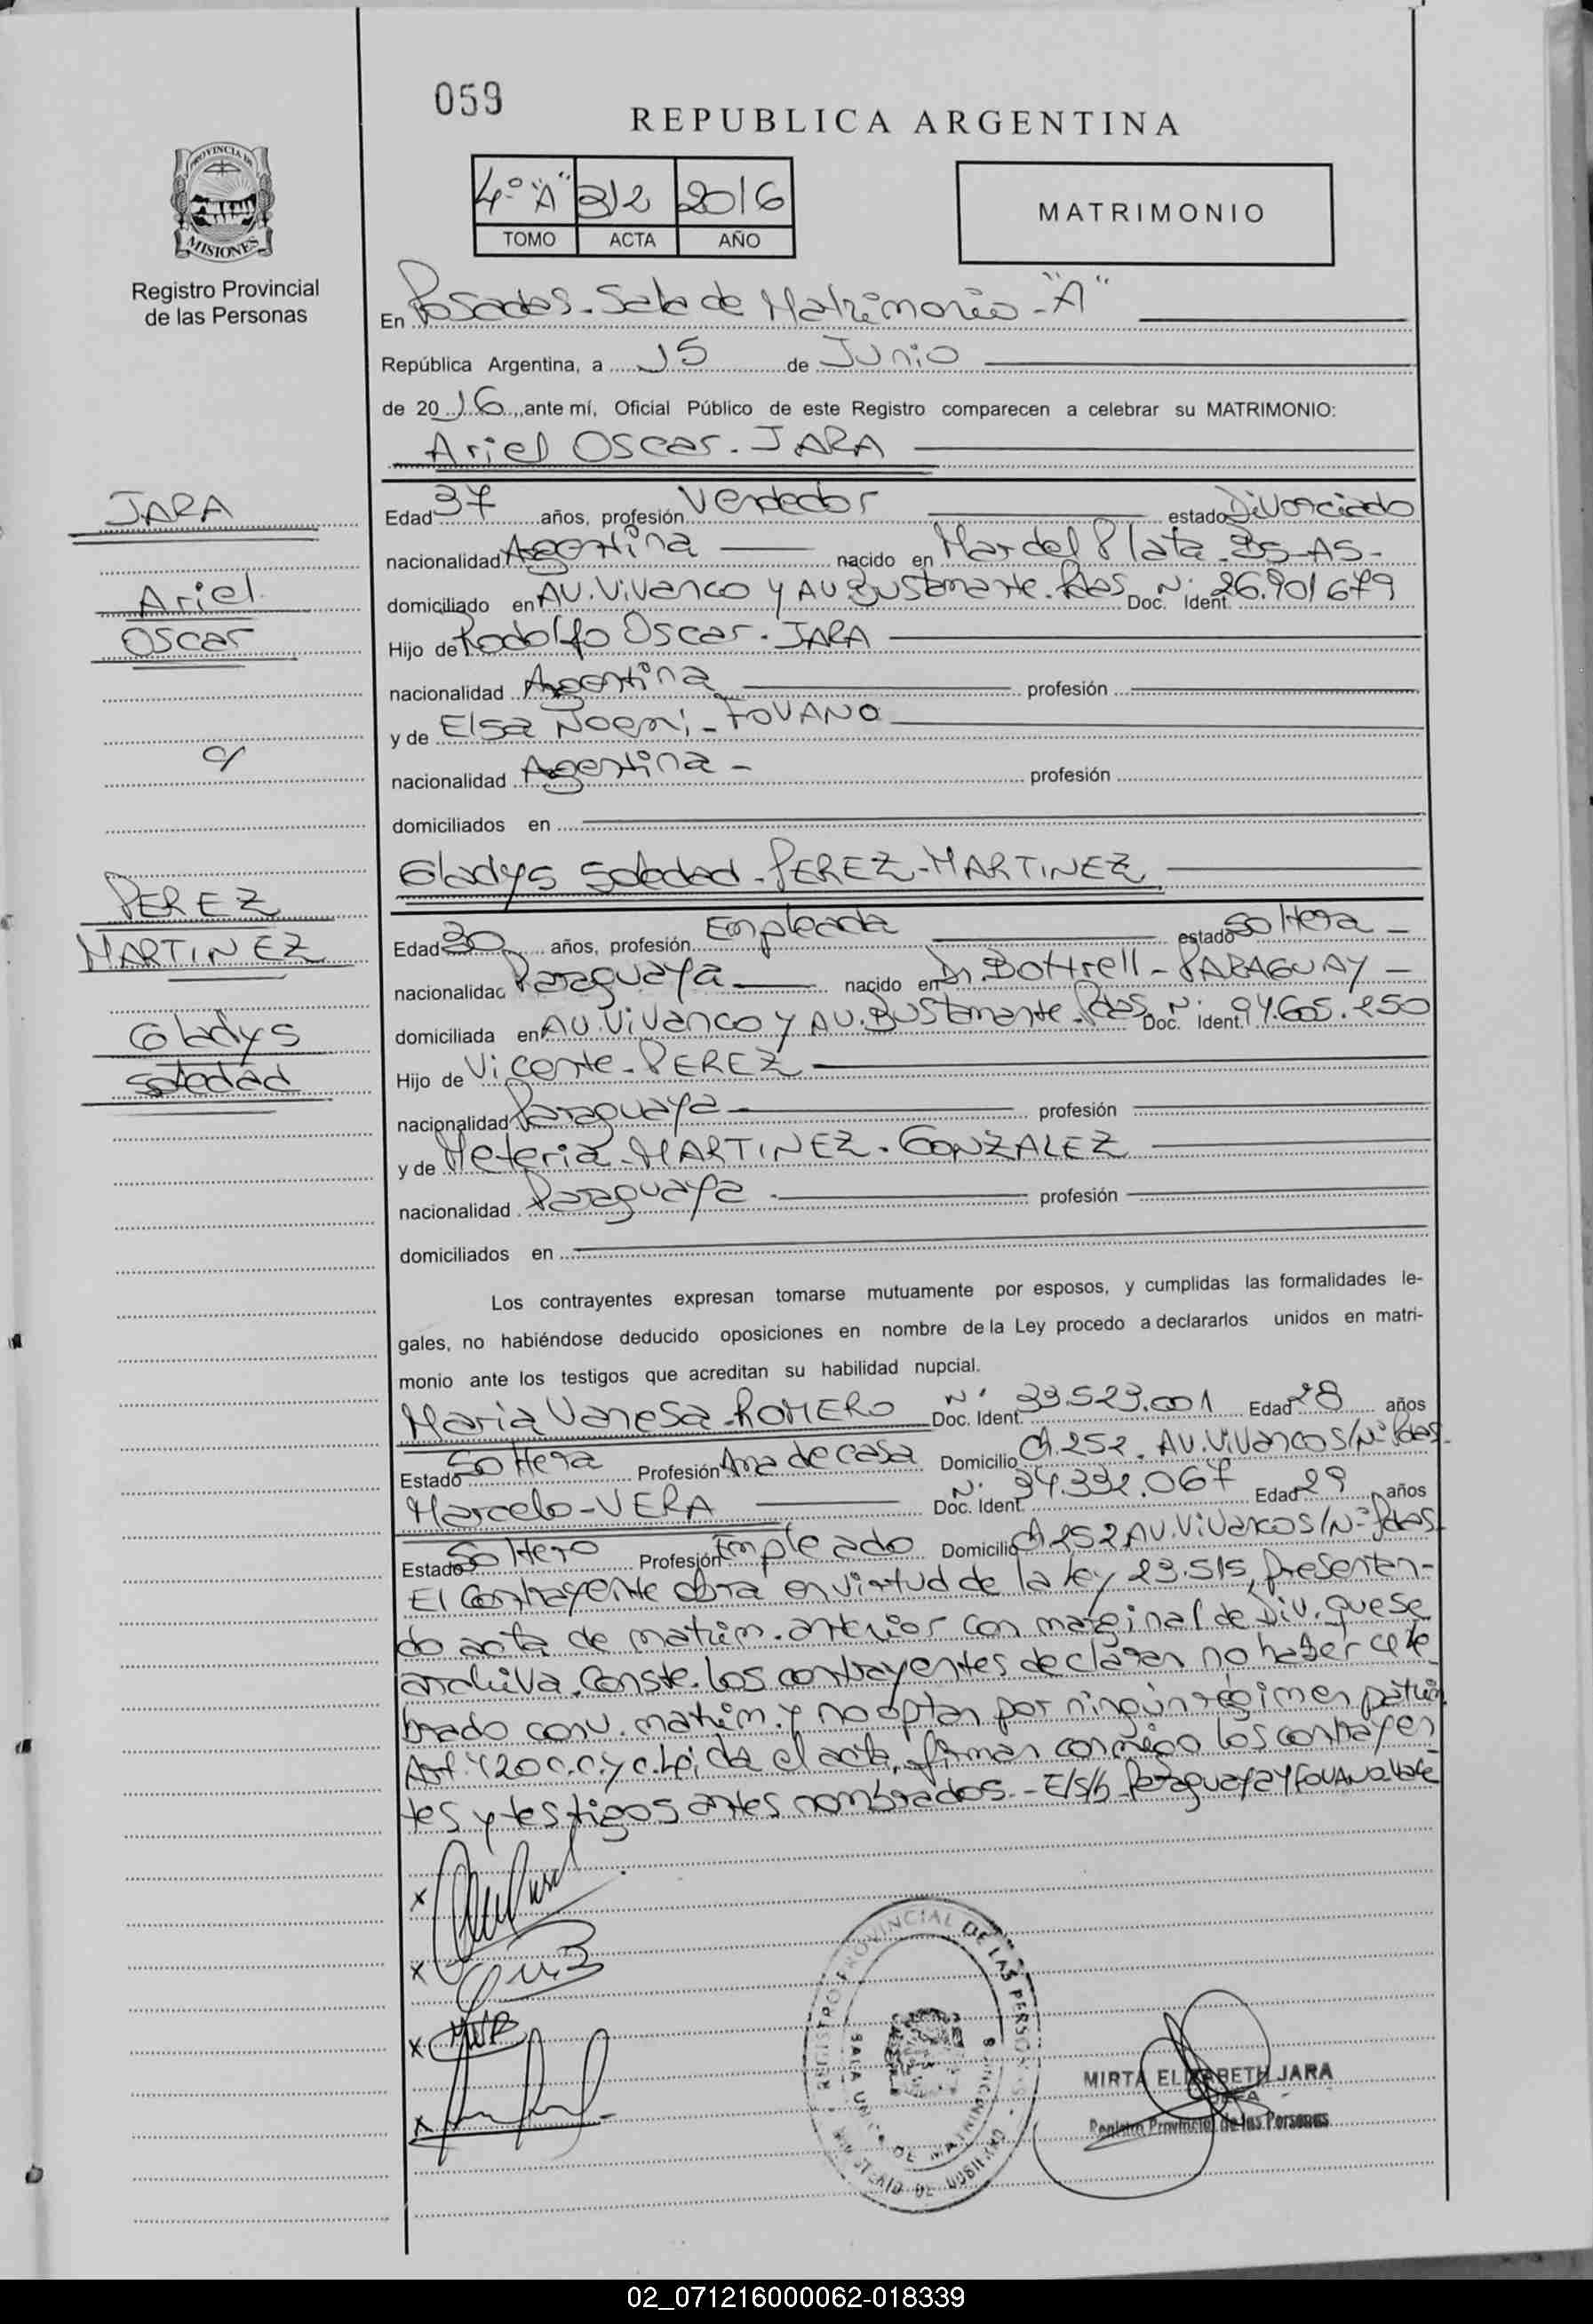 059
REPUBLICA ARGENTINA
4º "A" 312 2016
TOMO ACTA AÑO
MATRIMONIO
PROVINCIA DE
MISIONES
Registro Provincial
de las Personas
En Posadas - Sala de Matrimonio - "A"
República Argentina, a 15 de Junio
de 2016, ante mí, Oficial Público de este Registro comparecen a celebrar su MATRIMONIO:
Ariel Oscar - JARA
JARA
Ariel
Oscar
c/
PEREZ
MARTINEZ
Gladys
Soledad
Edad 37 años, profesión Vendedor estado Divorciado
nacionalidad Argentina nacido en Mar del Plata - Bs-As-
domiciliado en Av. Vivanco y Av Bustamante. Pdas Doc. Ident. Nº 26.901679
Hijo de Rodolfo Oscar - JARA
nacionalidad Argentina profesión
y de Elsa Noemi - FOVANO
nacionalidad Argentina - profesión
domiciliados en
Gladys Soledad - PEREZ - MARTINEZ
Edad 30 años, profesión Empleada estado Soltera -
nacionalidad Paraguaya nacido en Dr. Bottrell - PARAGUAY -
domiciliada en Av. Vivanco y Av. Bustamante. Pdas Doc. Ident. Nº 94.605.250
Hijo de Vicente - PEREZ
nacionalidad Paraguaya - profesión
y de MARTINEZ - GONZALEZ
nacionalidad Paraguaya - profesión
domiciliados en
Los contrayentes expresan tomarse mutuamente por esposos, y cumplidas las formalidades le-
gales, no habiéndose deducido oposiciones en nombre de la Ley procedo a declararlos unidos en matri-
monio ante los testigos que acreditan su habilidad nupcial.
Maria Vanesa - ROMERO Doc. Ident. Nº 33.523.001 Edad 28 años
Estado Soltera Profesión Ama de casa Domicilio Ch. 252. Av. Vivanco S/Nº Pdas
Marcelo - VERA Doc. Ident. Nº 34.332.067 Edad 29 años
Estado Soltero Profesión Empleado Domicilio Ch 252 Av. Vivanco S/Nº Pdas
El contrayente obra en virtud de la ley 23.515, presentan-
do acta de matrim. anterior con marginal de Div. que se
archiva. Conste. Los contrayentes declaran no haber cele-
brado conv. matrim. y no optan por ningún régimen patrim.
Art. 420 C.C. y C. Leída el acta, firman conmigo los contrayen-
tes y testigos antes nombrados. - E/S/b - Paraguaya y FOVANO. Vale
REGISTRO PROVINCIAL DE LAS PERSONAS
MINISTERIO DE GOBIERNO
MIRTA ELIZABETH JARA
Registro Provincial de las Personas
02_071216000062-018339